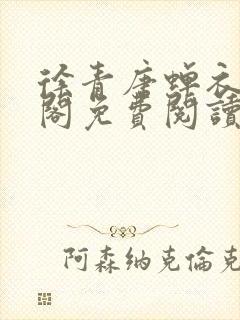 徐青唐蟬衣
閣免費閱讀
阿森納克倫克